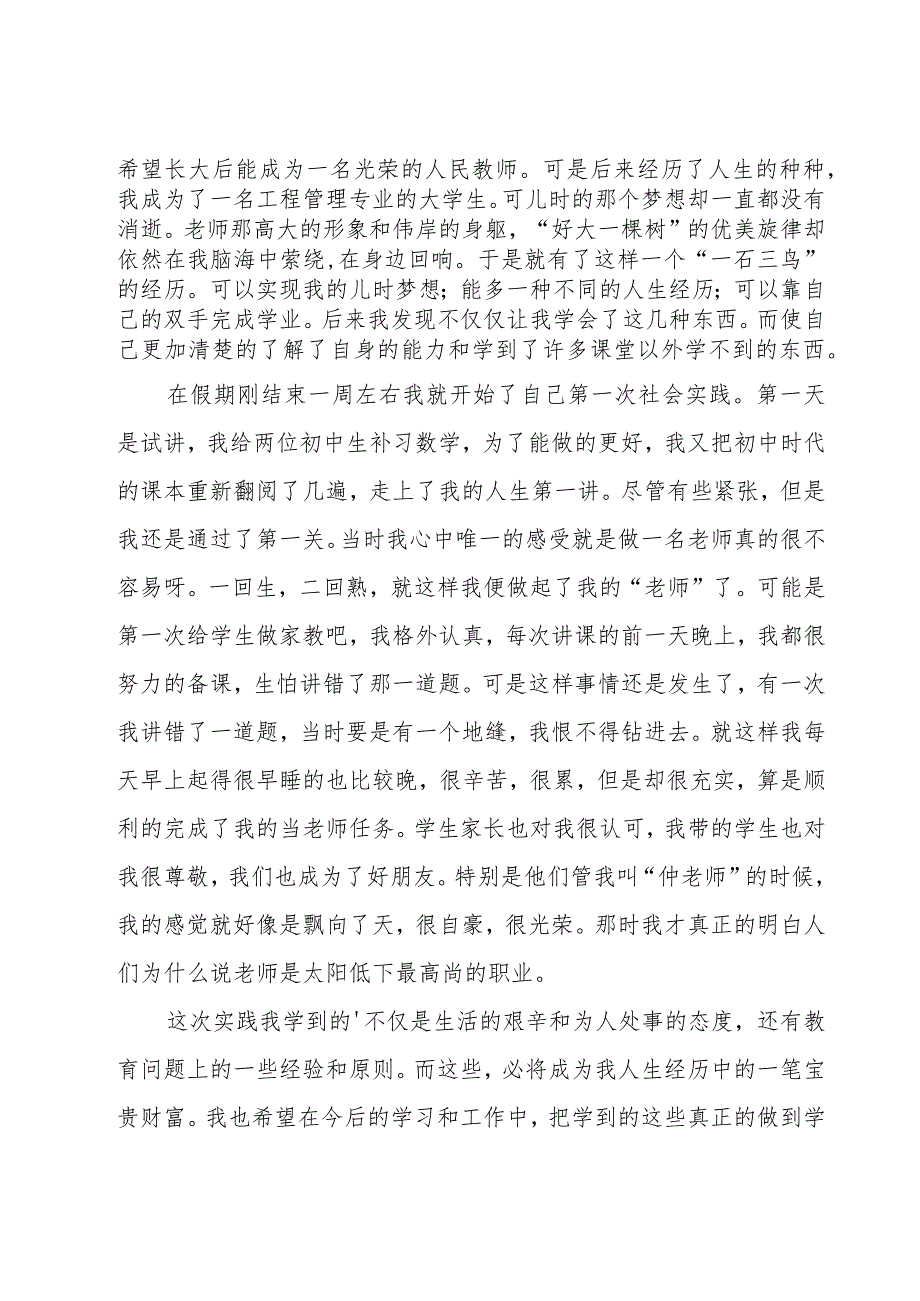 希望长大后能成为一名光荣的人民教师。可是后来经历了人生的种种，
我成为了一名工程管理专业的大学生。可儿时的那个梦想却一直都没有
消逝。老师那高大的形象和伟岸的身躯，“好大一棵树”的优美旋律却
依然在我脑海中萦绕,在身边回响。于是就有了这样一个“一石三鸟”
的经历。可以实现我的儿时梦想；能多一种不同的人生经历；可以靠自
己的双手完成学业。后来我发现不仅仅让我学会了这几种东西。而使自
己更加清楚的了解了自身的能力和学到了许多课堂以外学不到的东西。
在假期刚结束一周左右我就开始了自己第一次社会实践。第一天
是试讲，我给两位初中生补习数学，为了能做的更好，我又把初中时代
的课本重新翻阅了几遍，走上了我的人生第一讲。尽管有些紧张，但是
我还是通过了第一关。当时我心中唯一的感受就是做一名老师真的很不
容易呀。一回生，二回熟，就这样我便做起了我的“老师”了。可能是
第一次给学生做家教吧，我格外认真，每次讲课的前一天晚上，我都很
努力的备课，生怕讲错了那一道题。可是这样事情还是发生了，有一次
我讲错了一道题，当时要是有一个地缝，我恨不得钻进去。就这样我每
天早上起得很早睡的也比较晚，很辛苦，很累，但是却很充实，算是顺
利的完成了我的当老师任务。学生家长也对我很认可，我带的学生也对
我很尊敬，我们也成为了好朋友。特别是他们管我叫“仲老师”的时候，
我的感觉就好像是飘向了天，很自豪，很光荣。那时我才真正的明白人
们为什么说老师是太阳低下最高尚的职业。
这次实践我学到的'不仅是生活的艰辛和为人处事的态度，还有教
育问题上的一些经验和原则。而这些，必将成为我人生经历中的一笔宝
贵财富。我也希望在今后的学习和工作中，把学到的这些真正的做到学